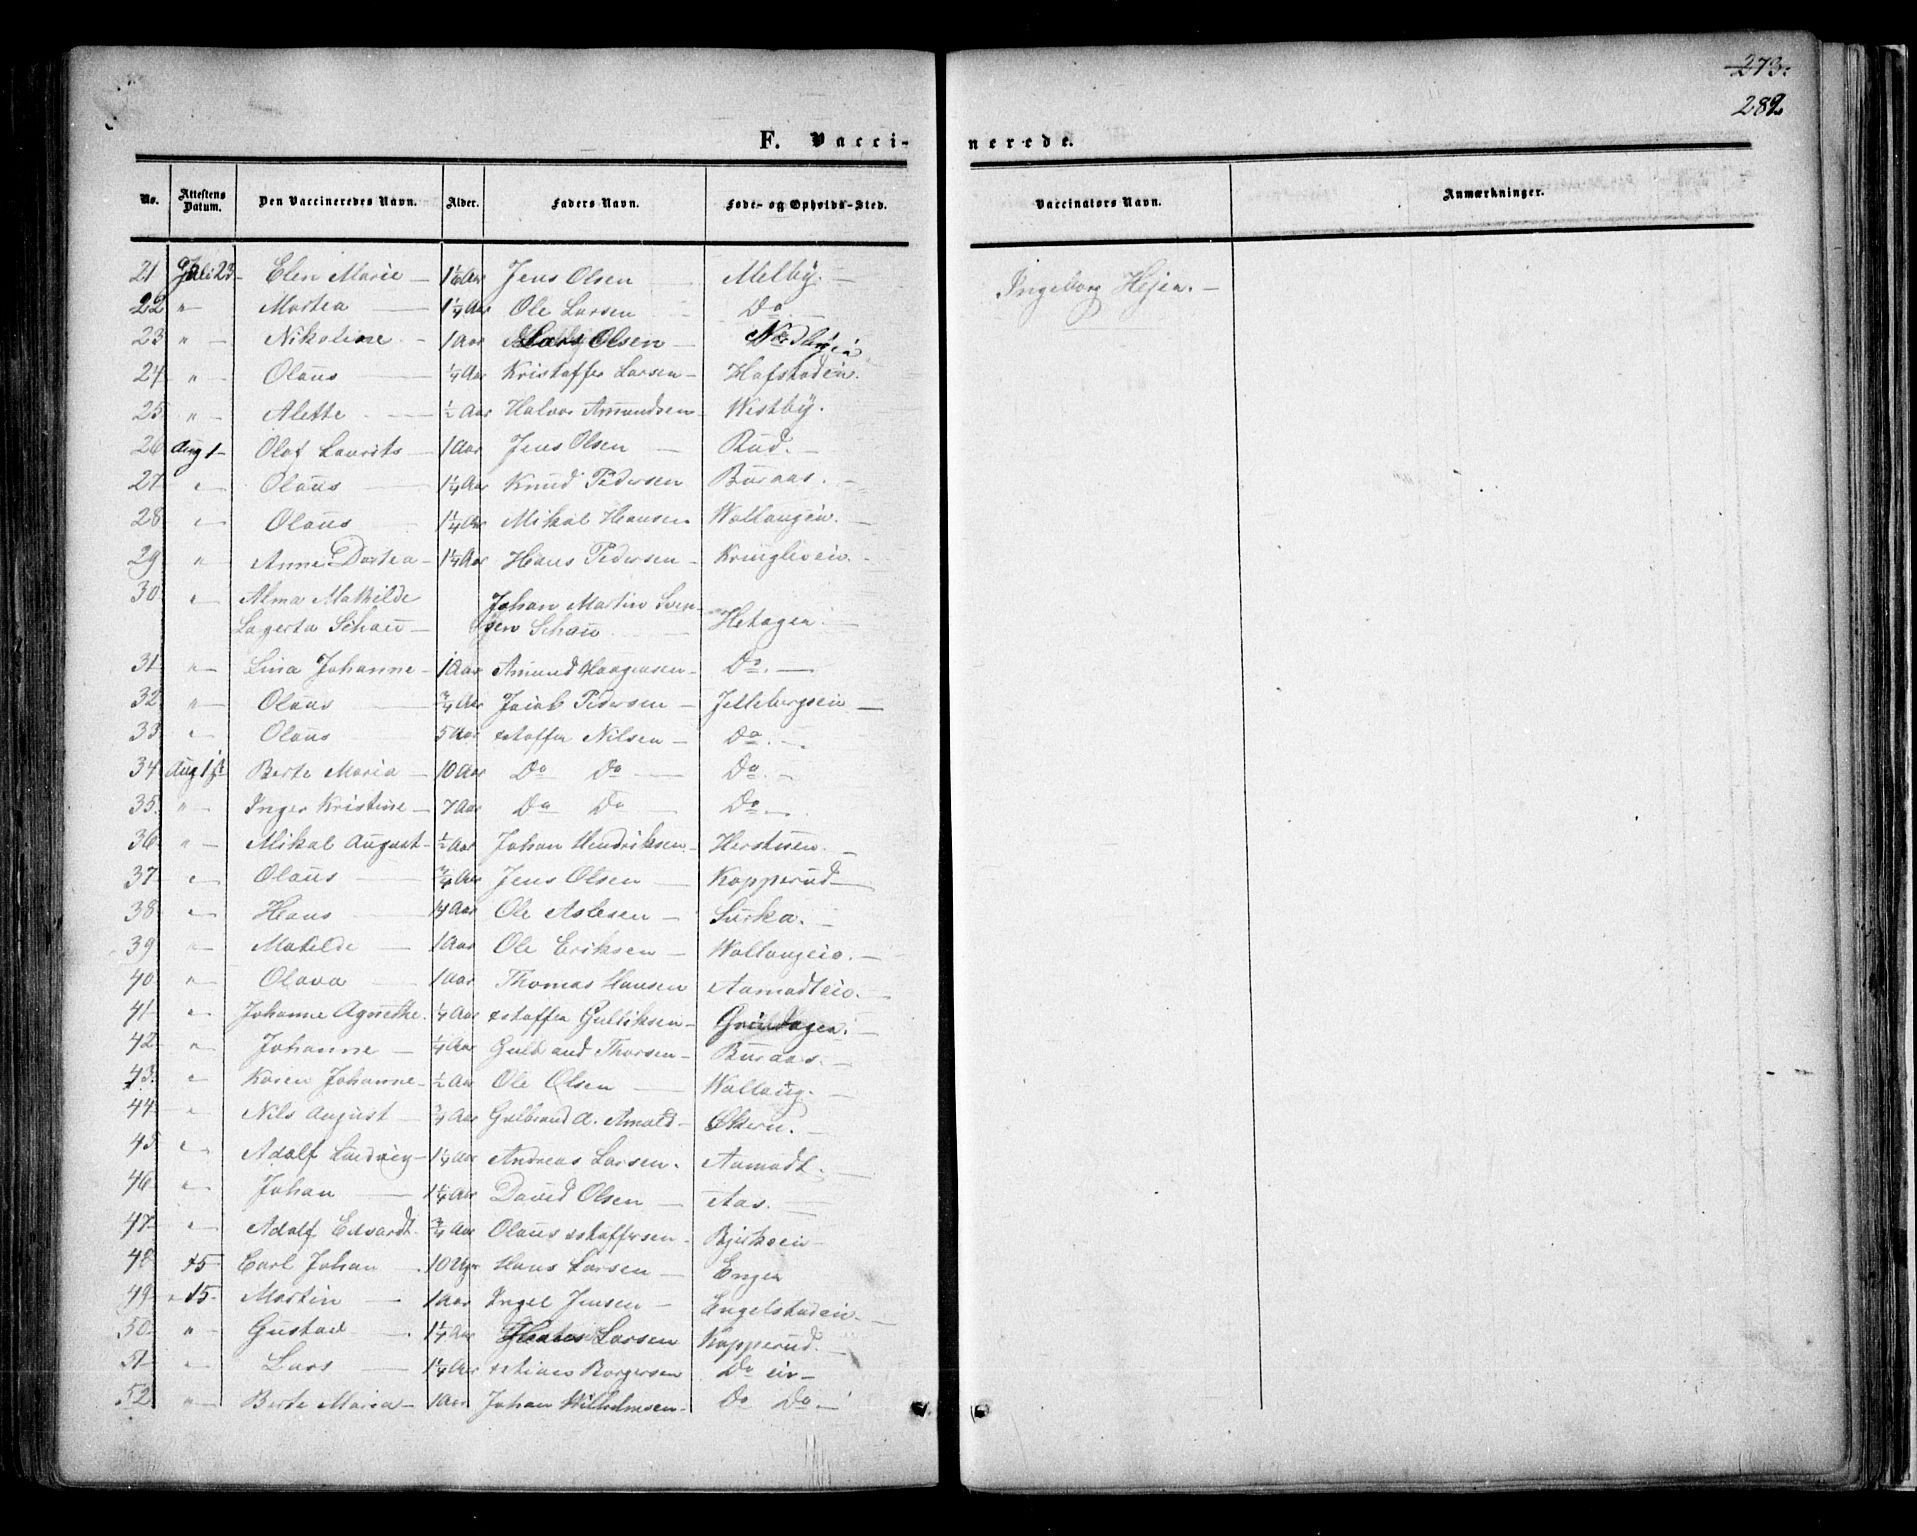 273.
282
F. Vacci-
nerede.
No. Attestens Datum. Den Vaccineredes Navn. Alder. Faders Navn. Føde- og Opholds-Sted. Vaccinators Navn. Anmærkninger.
21 Juli 23 - Elen Marie - 1 1/6 Aar Jens Olsen - Melby. - Ingeborg Hejen. -
22 " - Martea - 1 1/4 Aar Ole Larsen - Do. -
23 " - Nikoline - 1 Aar Lars Olsen -
24 " - Olaus 1/4 Aar Kristoffer Larsen - Hafstadein.
25 " - Alette - 1/2 Aar Halvor Amundsen - Westby.
26 Aug 1 - Olof Laurits - 1 Aar Jens Olsen - Rud. -
27 " - Olaus - 1 1/4 Aar Knud Pedersen Buraas. -
28 " - Olaus - 1 1/4 Aar Mikal Hansen Wollaugein. -
29 " - Anne Dortea - 1 1/4 Aar Hans Pedersen - Kringlieeie. -
30 " - Alma Mathilde Johan Martin Sven-
Lagerta Schau - sen Schau - Hetagen. -
31 " - Lina Johanne - 1 Aar Amund Haagensen - Do. -
32 " - Olaus - 3/4 Aar Jacob Pedersen - Jellebergseie -
33 " - Olaus - 5 Aar stoffer Nilsen - Do. -
34 Aug 1st Berte Maria - 10 Aar Do Do - Do. -
35 " - Inger Kristine - 7 Aar Do Do - Do. -
36 " - Mikal August - 1/2 Aar Johan Hendriksen. Herstuen. -
37 " - Olaus - 3/4 Aar Jens Olsen - Kopperud -
38 " - Hans - 14 Aar Ole Aslesen - Surka. -
39 " - Matilde - 1 Aar Ole Eriksen - Wollaugeie. -
40 " - Olava 1 Aar Thomas Hansen Aamodteie. -
41 " - Johanne Agnethe. 1/4 Aar stoffer Gulliksen -
42 " - Johanne - 1/4 Aar Guldbrand Thorsen - Buraas. -
43 " - Karen Johanne - 1/2 Aar Ole Olsen - Wollaug. -
44 " - Nils August - 3/4 Aar Gulbrand A. Amold - Økern. -
45 " - Adolf Ludvig - 1 1/4 Aar Andreas Larsen. Aamodt. -
46 " - Johan - 1 1/4 Aar David Olsen - Aas. -
47 " - Adolf Edvardt 3/4 Aar Olaus stoffersen - Bjerkeeie -
48 15 - Carl Johan - 10 Uger Hans Larsen - Enger
49 " 15 - Martin - 1 Aar Ingel Jensen - Engelstadeie. -
50 " Gustav - 1 1/4 Aar Larsen Kopperud. -
51 " - Lars - 1 1/4 Aar stians Borgersen Do eie -
52 " - Berte Maria - 1 Aar Johan Wilhelmsen - Do Do. -